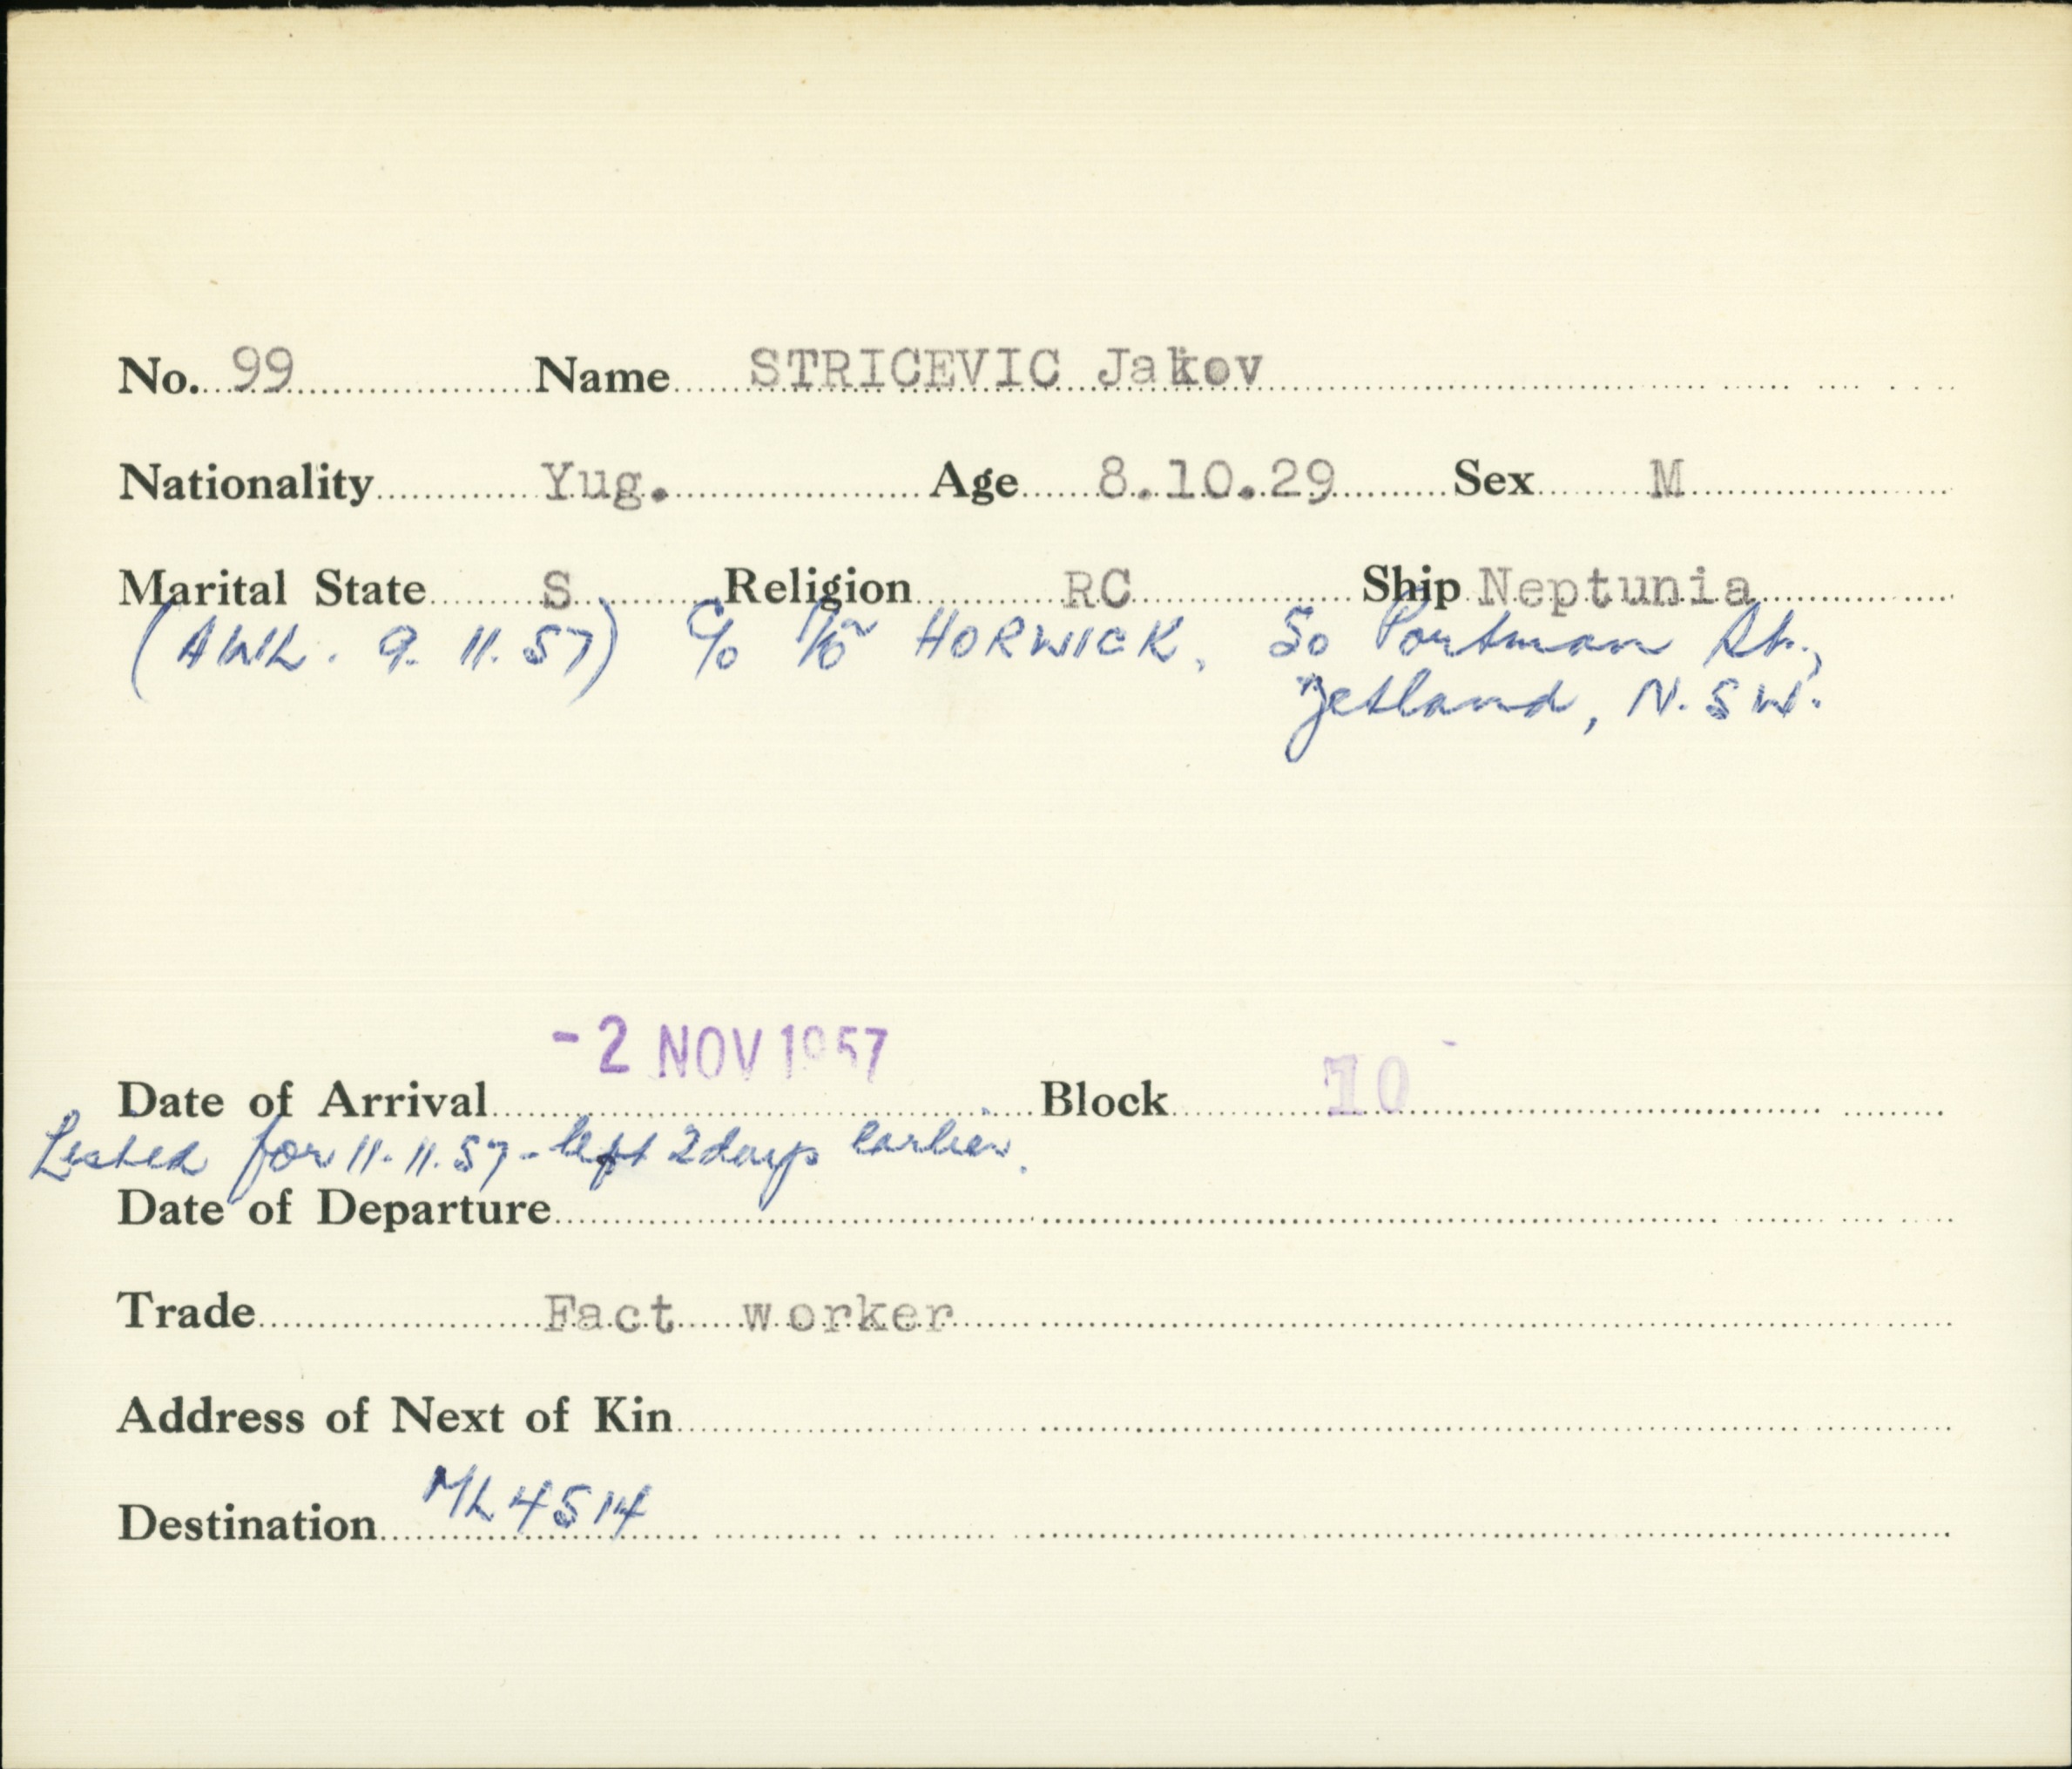 No. 99 Name STRICEVIC Jakov
Nationality Yug. Age 8.10.29 Sex M
Marital State S Religion RC Ship Neptunia
(AWL. 9.11.57) C/o HORWICK, 50 Portman St.,
Zetland, N.S.W.
-2 NOV 1957
Date of Arrival Block 10
Listed for 11.11.57 - left 2 days earlier.
Date of Departure
Trade Fact worker
Address of Next of Kin
Destination ML 4514